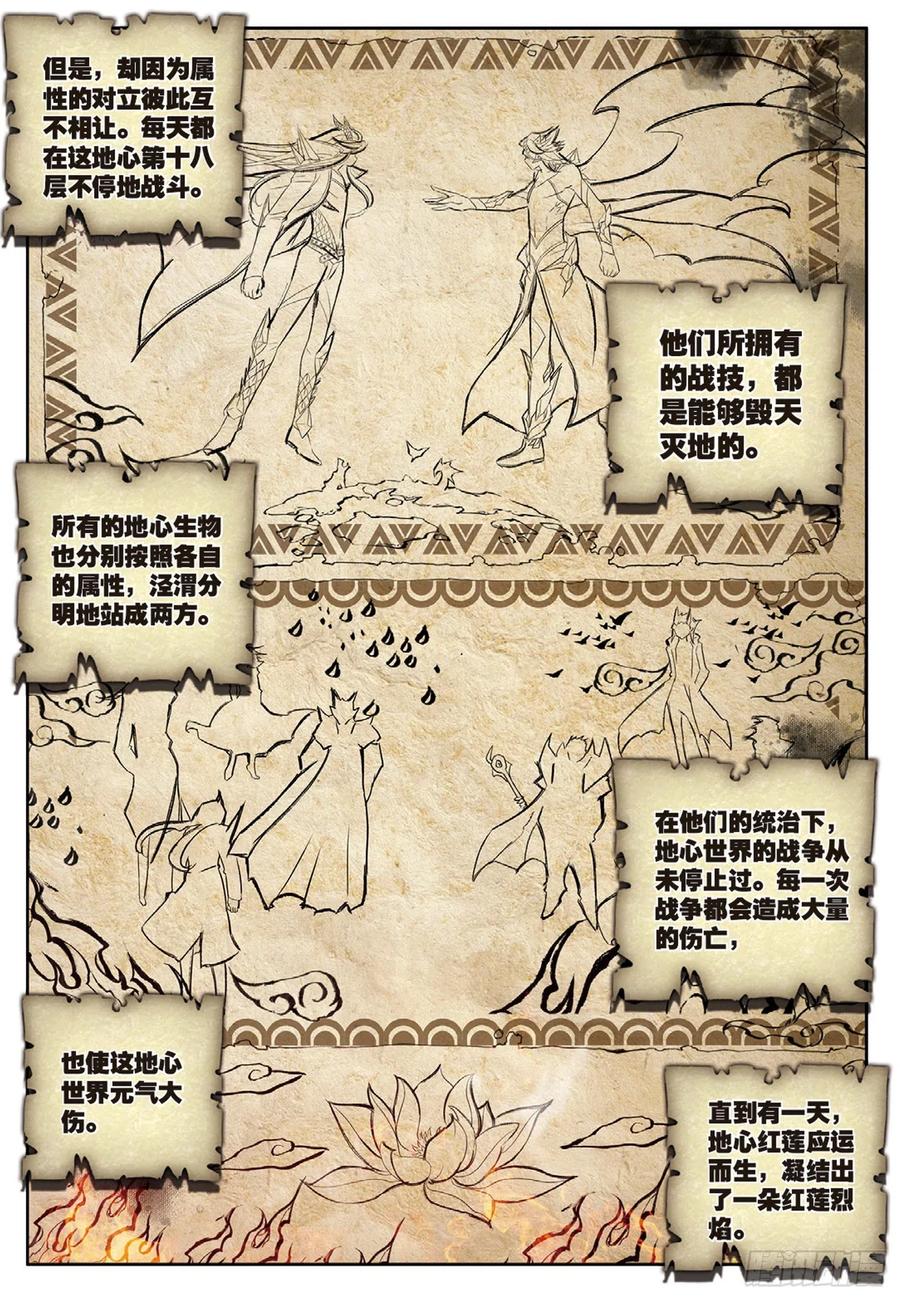 但是，却因为属
性的对立彼此互
不相让。每天都
在这地心第十八
层不停地战斗。
他们所拥有
的战技，都
是能够毁天
灭地的。
所有的地心生物
也分别按照各自
的属性，泾渭分
明地站成两方。
在他们的统治下，
地心世界的战争从
未停止过。每一次
战争都会造成大量
的伤亡，
也使这地心
世界元气大
伤。
直到有一天，
地心红莲应运
而生，凝结出
了一朵红莲烈
焰。